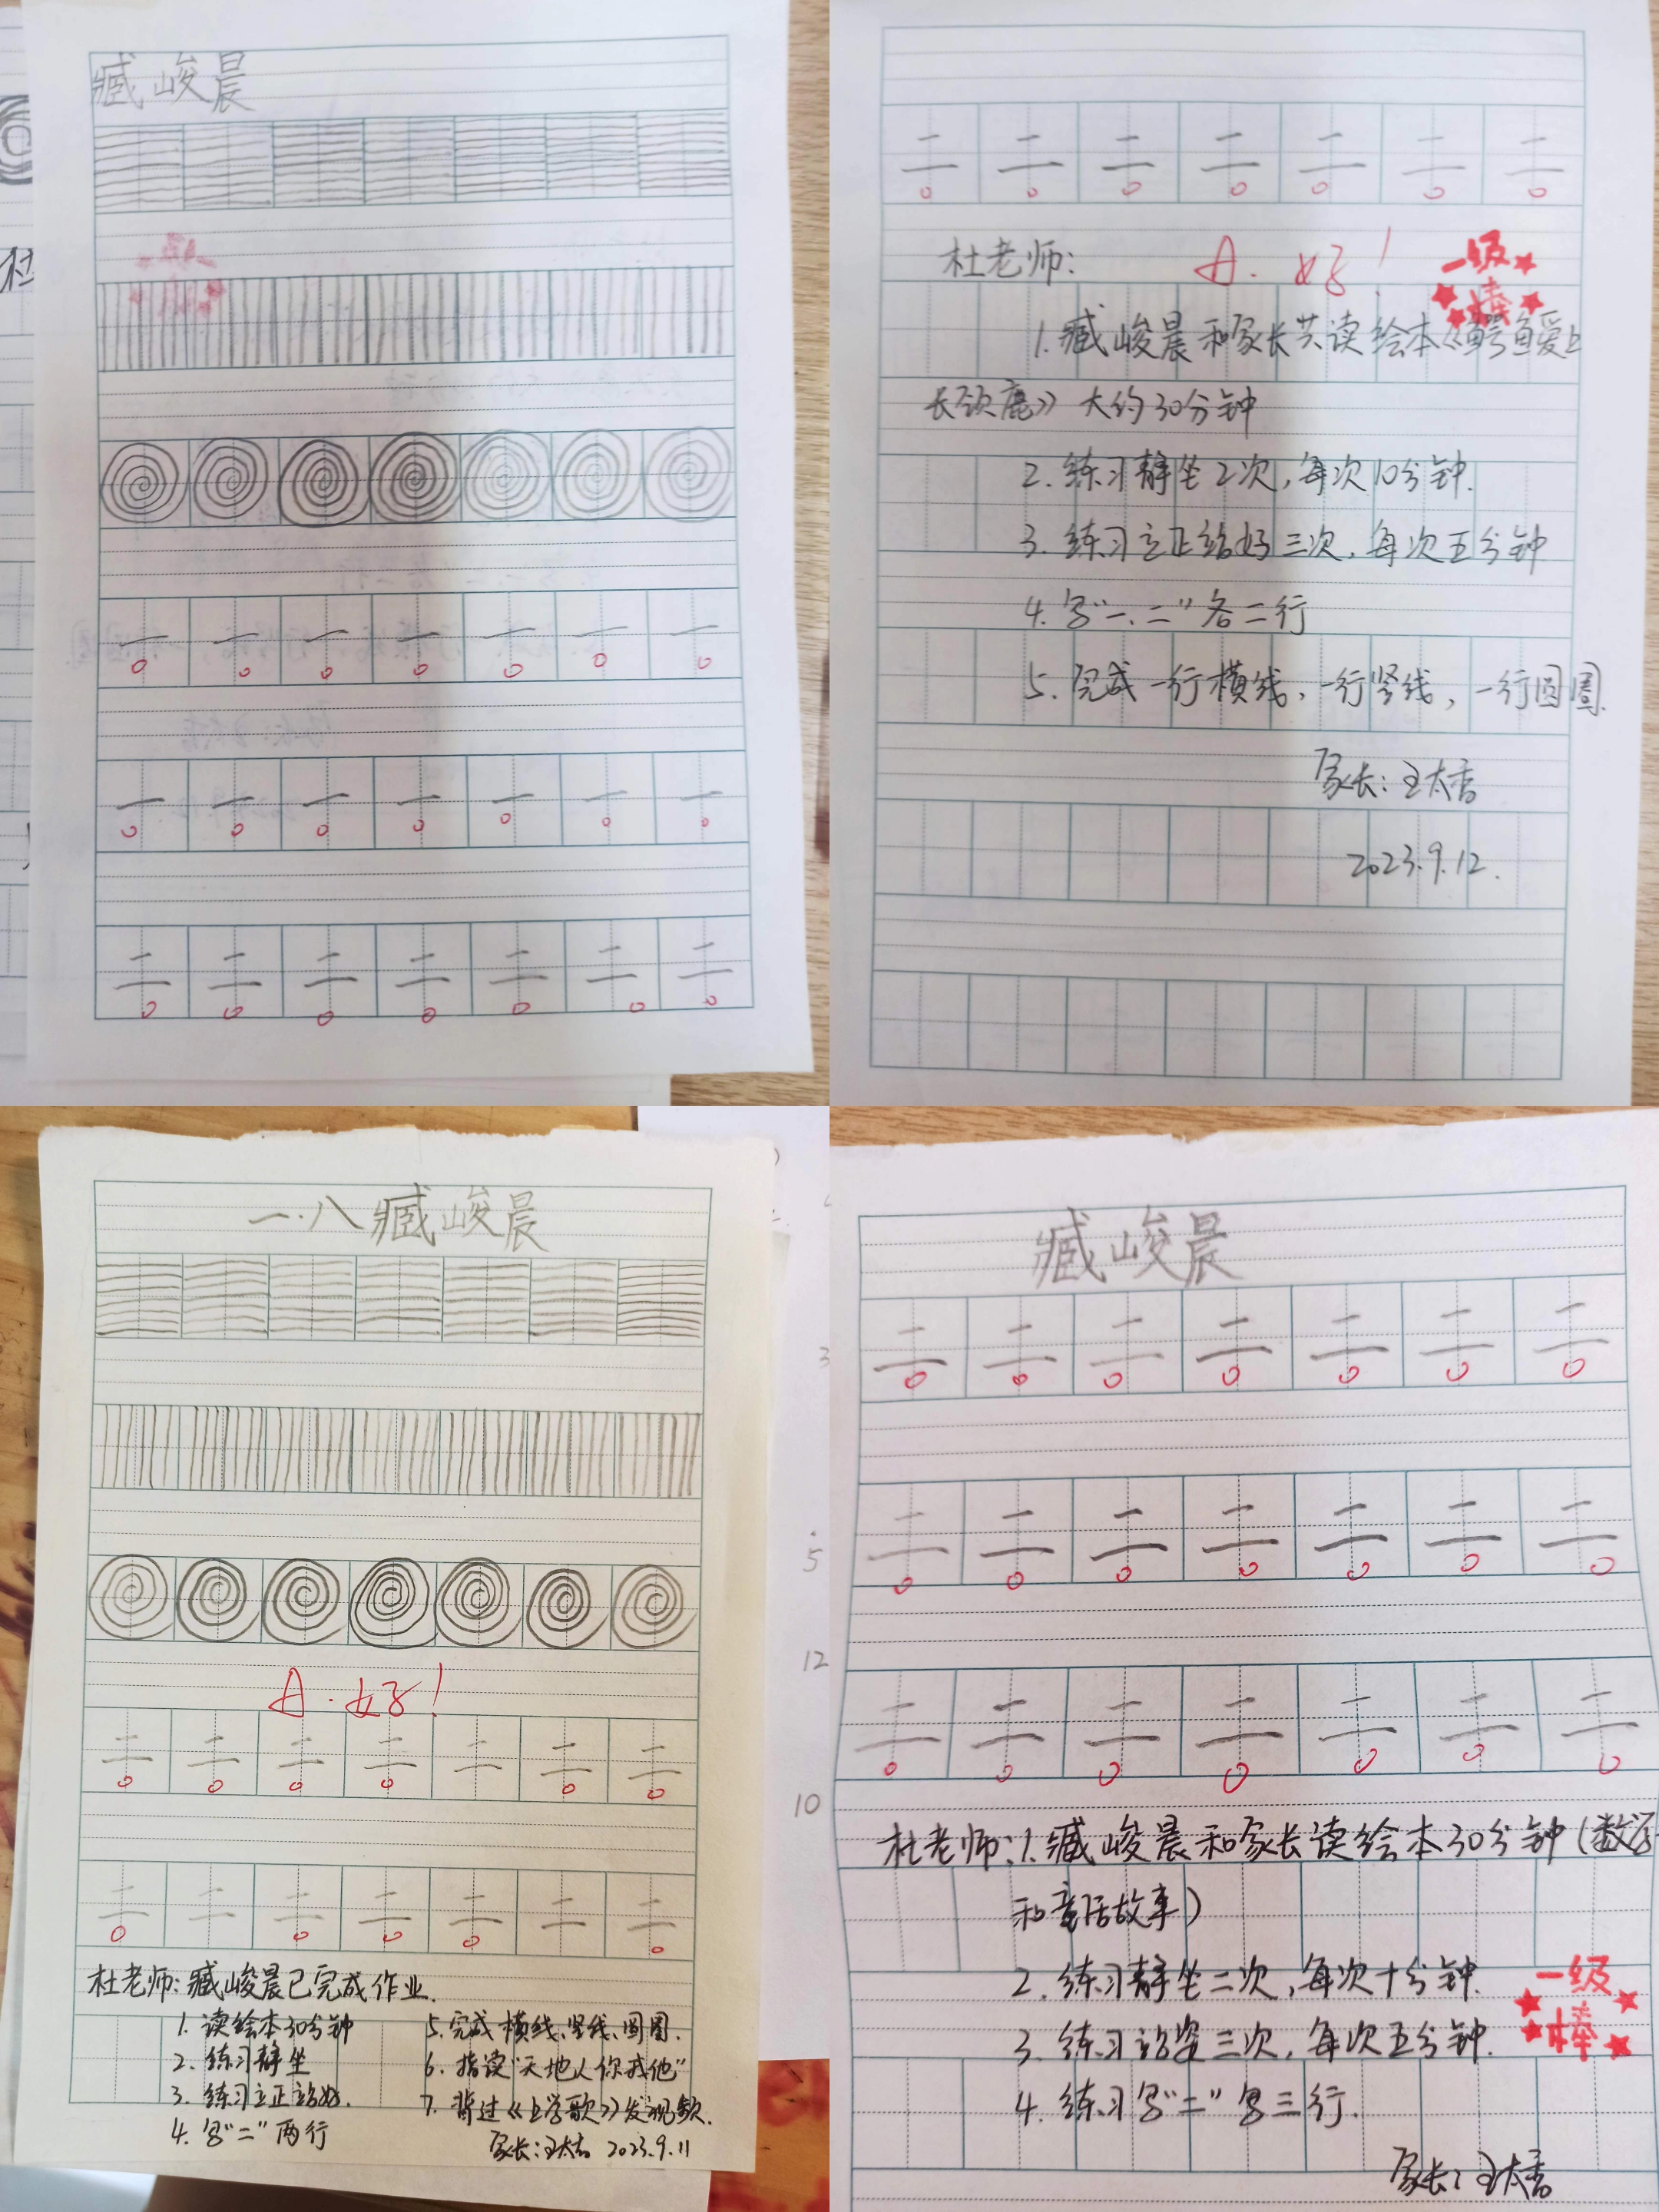 臧峻晨
一 一 一 一 一 一 一
一 一 一 一 一 一 一
二 二 二 二 二 二 二
二 二 二 二 二 二 二
杜老师:
A. 好!
一级
棒
1. 臧峻晨和家长共读绘本《鳄鱼爱上
长颈鹿》 大约30分钟
2. 练习静坐2次,每次10分钟.
3. 练习立正站好三次,每次五分钟
4. 写“一、二”各二行
5. 完成一行横线,一行竖线,一行圆圈.
家长:王太吉
2023.9.12.
一·八臧峻晨
A. 好!
二 二 二 二 二 二 二
二 二 二 二 二 二 二
杜老师:臧峻晨已完成作业.
1. 读绘本30分钟
2. 练习静坐
3. 练习立正站好.
4. 写“二”两行
5. 完成横线、竖线、圆圈.
6. 指读“天地人你我他”
7. 背过《上学歌》发视频.
家长:王太吉 2023.9.11
臧峻晨
二 二 二 二 二 二 二
二 二 二 二 二 二 二
二 二 二 二 二 二 二
3
5
12
10
杜老师:1. 臧峻晨和家长读绘本30分钟(数学
和童话故事)
2. 练习静坐二次,每次十分钟.
3. 练习站姿三次,每次五分钟.
4. 练习写“二”字三行.
一级
棒
家长:王太吉